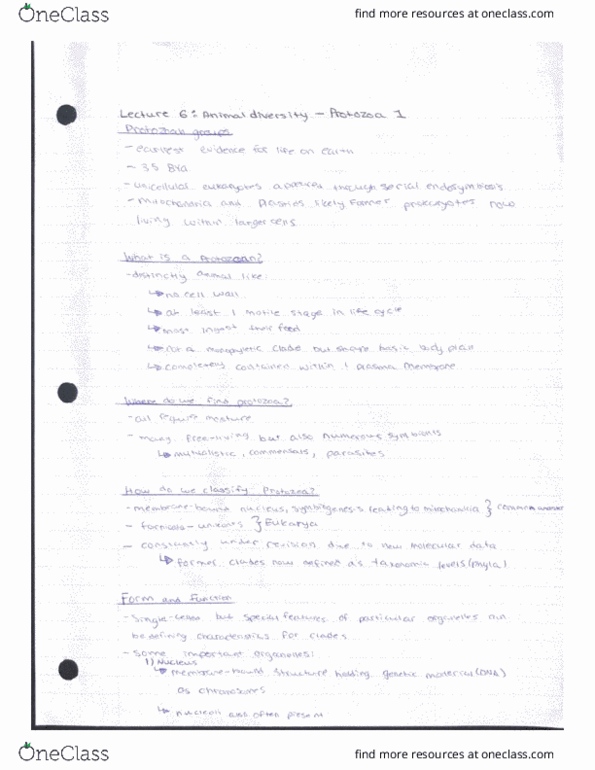 OneClass
find more resources at oneclass.com
Lecture 6: Animal diversity - Protozoa 1
Protozoan groups
- earliest evidence for life on earth
- 3.5 Bya
- unicellular eukaryotes through serial endosymbiosis
- mitochondria and plastids likely former prokaryotes now
living within larger cells
What is a Protozoan?
- distinctly animal like:
↳ no cell wall
↳ at least 1 motile stage in life cycle
↳ most ingest their food
↳ not a monophyletic clade but share basic body plan
↳ completely contained within 1 plasma membrane
Where do we find protozoa?
- all require moisture
- many free-living but also numerous symbionts
↳ mutualistic, commensals, parasites
How do we classify Protozoa?
- membrane-bound nucleus, symbiogenesis leading to mitochondria } common
- } Eukarya
- constantly under revision due to new molecular data
↳ former clades now defined as taxonomic levels (phyla)
Form and Function
- Single-celled but special features of particular organelles can
be defining characteristics for clades
- Some important organelles:
1) Nucleus
↳ membrane-bound structure holding genetic material (DNA)
as chromosomes
↳ nucleoli also often present
OneClass
find more resources at oneclass.com